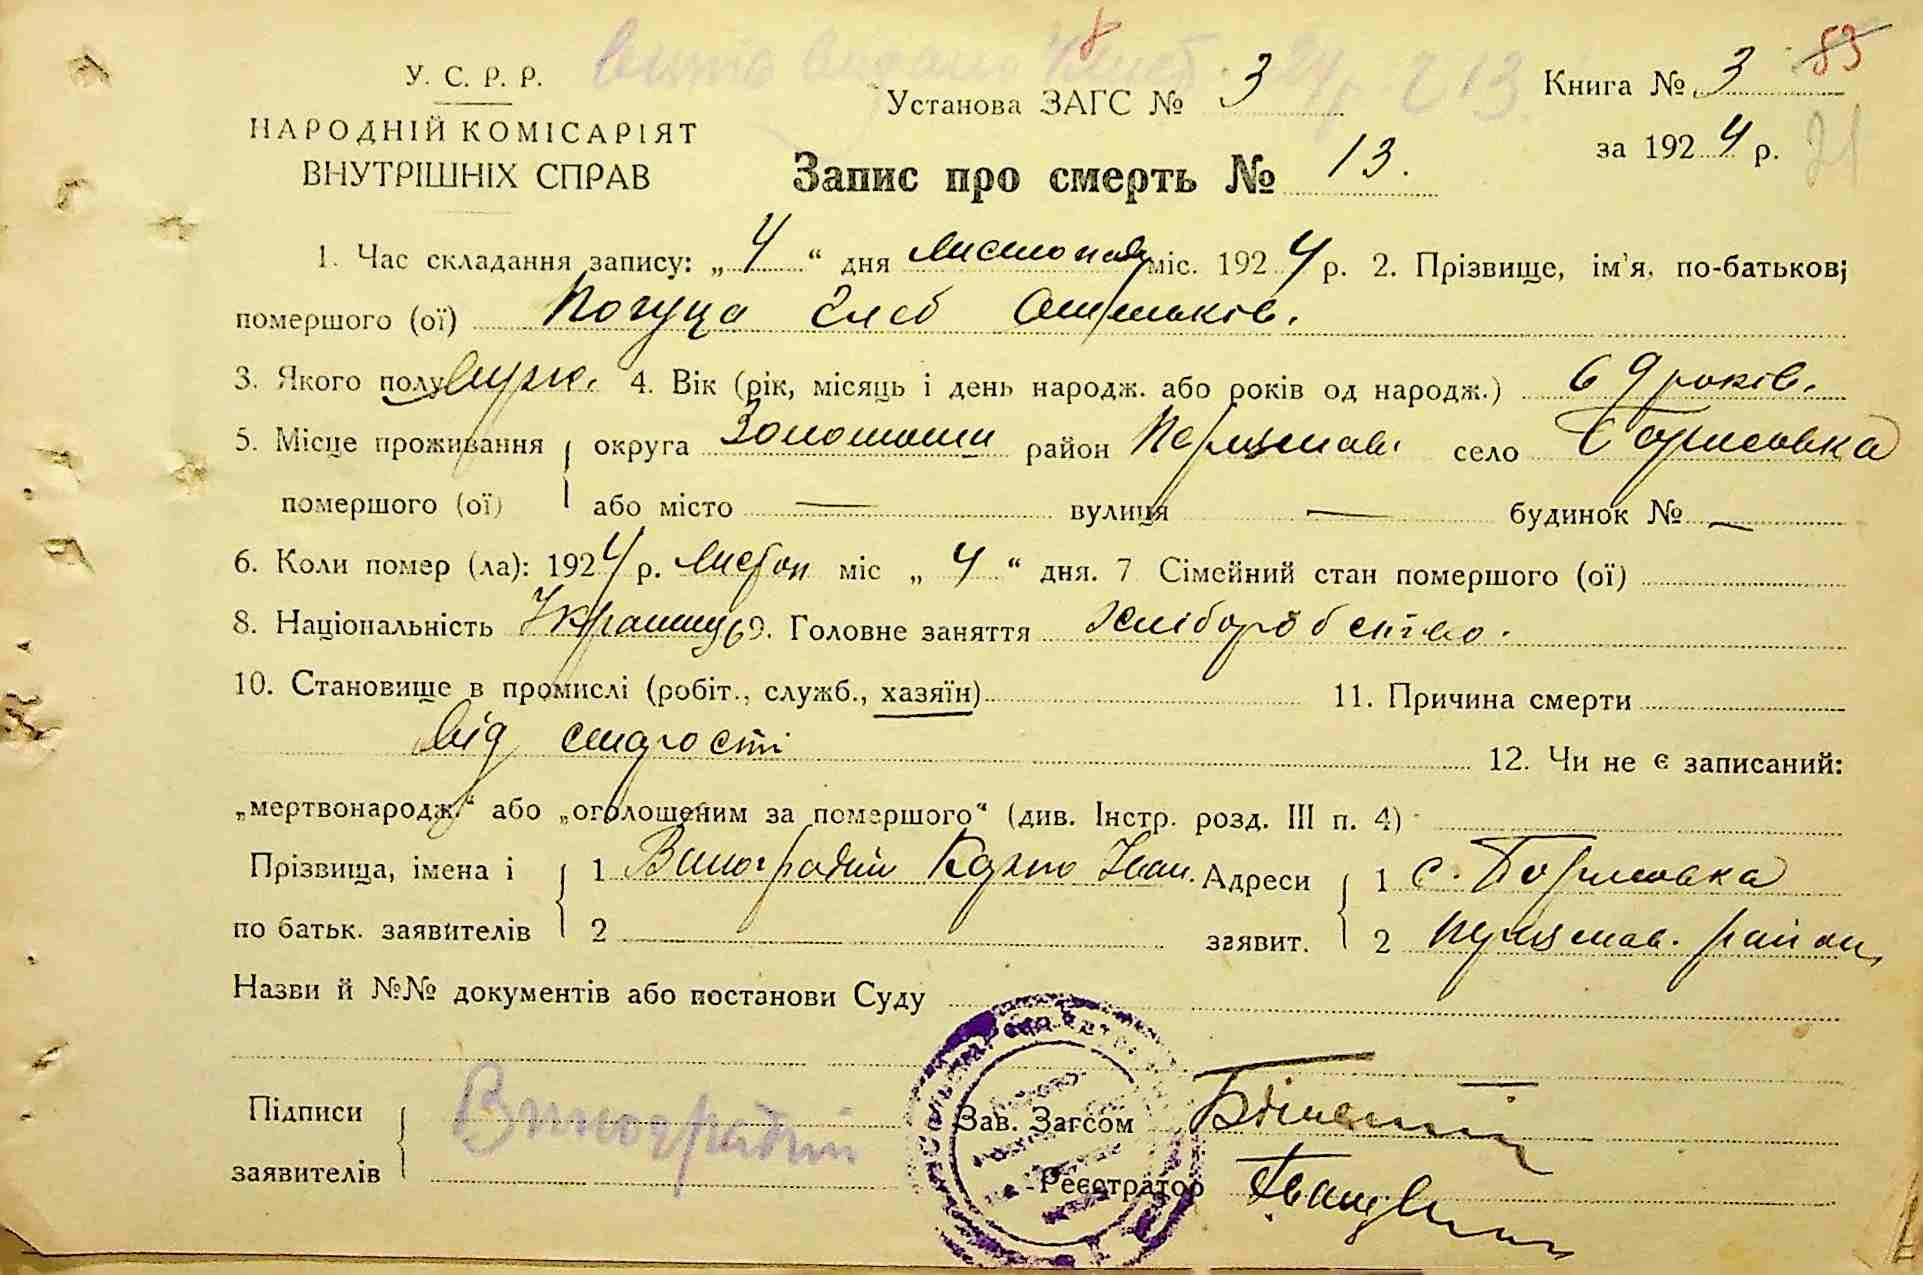 У. С. Р. Р.
НАРОДНІЙ КОМІСАРІЯТ
ВНУТРІШНІХ СПРАВ
Установа ЗАГС № 3
Книга № 3 83
за 1924 р. 21
Запис про смерть № 13.
1. Час складання запису: „4“ дня листопад міс. 1924 р. 2. Прізвище, ім'я, по-батькові
помершого (ої)
3. Якого полу муж. 4. Вік (рік, місяць і день народж. або років од народж.) 69 років.
5. Місце проживання округа Золотоши район село Борисовка
помершого (ої) або місто — вулиця — будинок № —
6. Коли помер (ла): 1924 р. міс „4“ дня. 7 Сімейний стан помершого (ої)
8. Національність 9. Головне заняття хліборобство.
10. Становище в промислі (робіт., служб., хазяїн) 11. Причина смерти
від старости
12. Чи не є записаний:
„мертвонародж.“ або „оголошеним за помершого“ (див. Інстр. розд. III п. 4)
Прізвища, імена і 1 Виноградній Карпо Іван. Адреси 1 с. Борисовка
по батьк. заявителів 2 заявит. 2 район
Назви й №№ документів або постанови Суду
Підписи Виноградній Зав. Загсом
заявителів Реєстратор